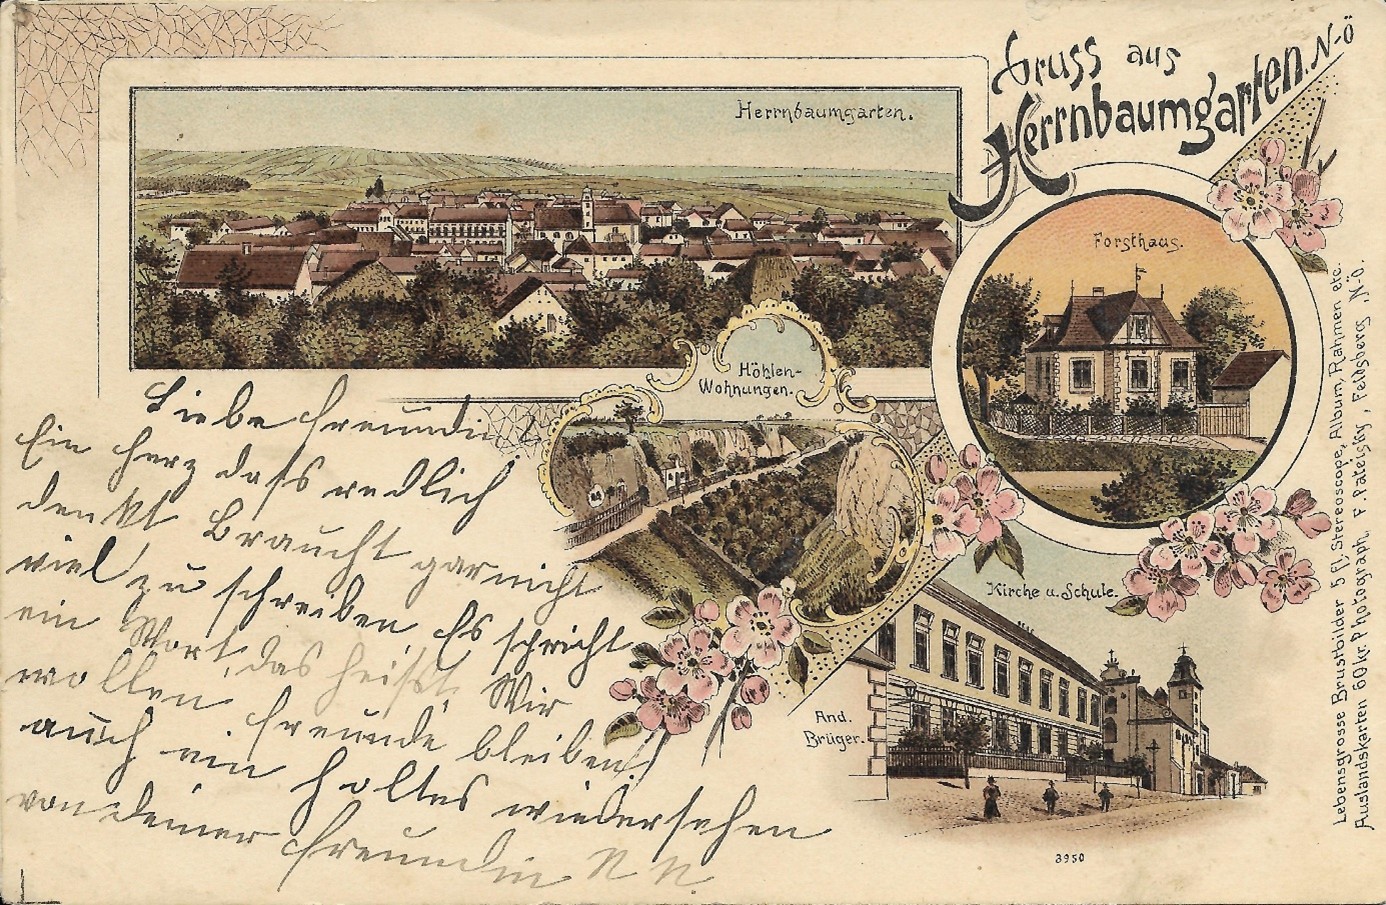 Gruss aus
Herrnbaumgarten. N-Ö
Herrnbaumgarten.
Forsthaus.
Höhlen-
Wohnungen.
Kirche u. Schule.
And.
Brüger.
Liebe Freundin
Ein Herz dass redlich
denkt Braucht gar nicht
viel zu schreiben Es spricht
ein Wort, das heisst, Wir
wollen Freunde bleiben!
auch ein holtes wiedersehen
von deiner Freundin N N.
Lebensgrosse Brustbilder 5 fl, Stereoscope, Album, Rahmen etc.
Auslandskarten 60 kr. Photograph. F. Pateisky, Feldsberg N-Ö.
3950